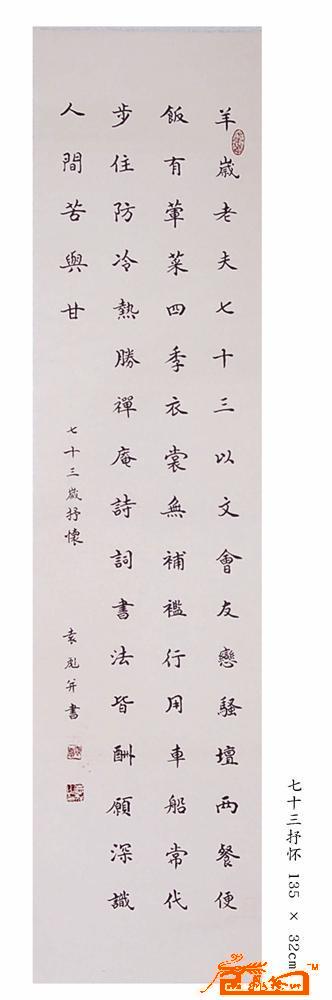 羊歲老夫七十三以文會友戀騷壇兩餐便
飯有葷菜四季衣裳無補襤行用車船常代
步住防冷熱勝禪庵詩詞書法皆酬願深識
人間苦與甘
七十三歲抒懷
袁彪并書
七十三抒怀 135 × 32cm